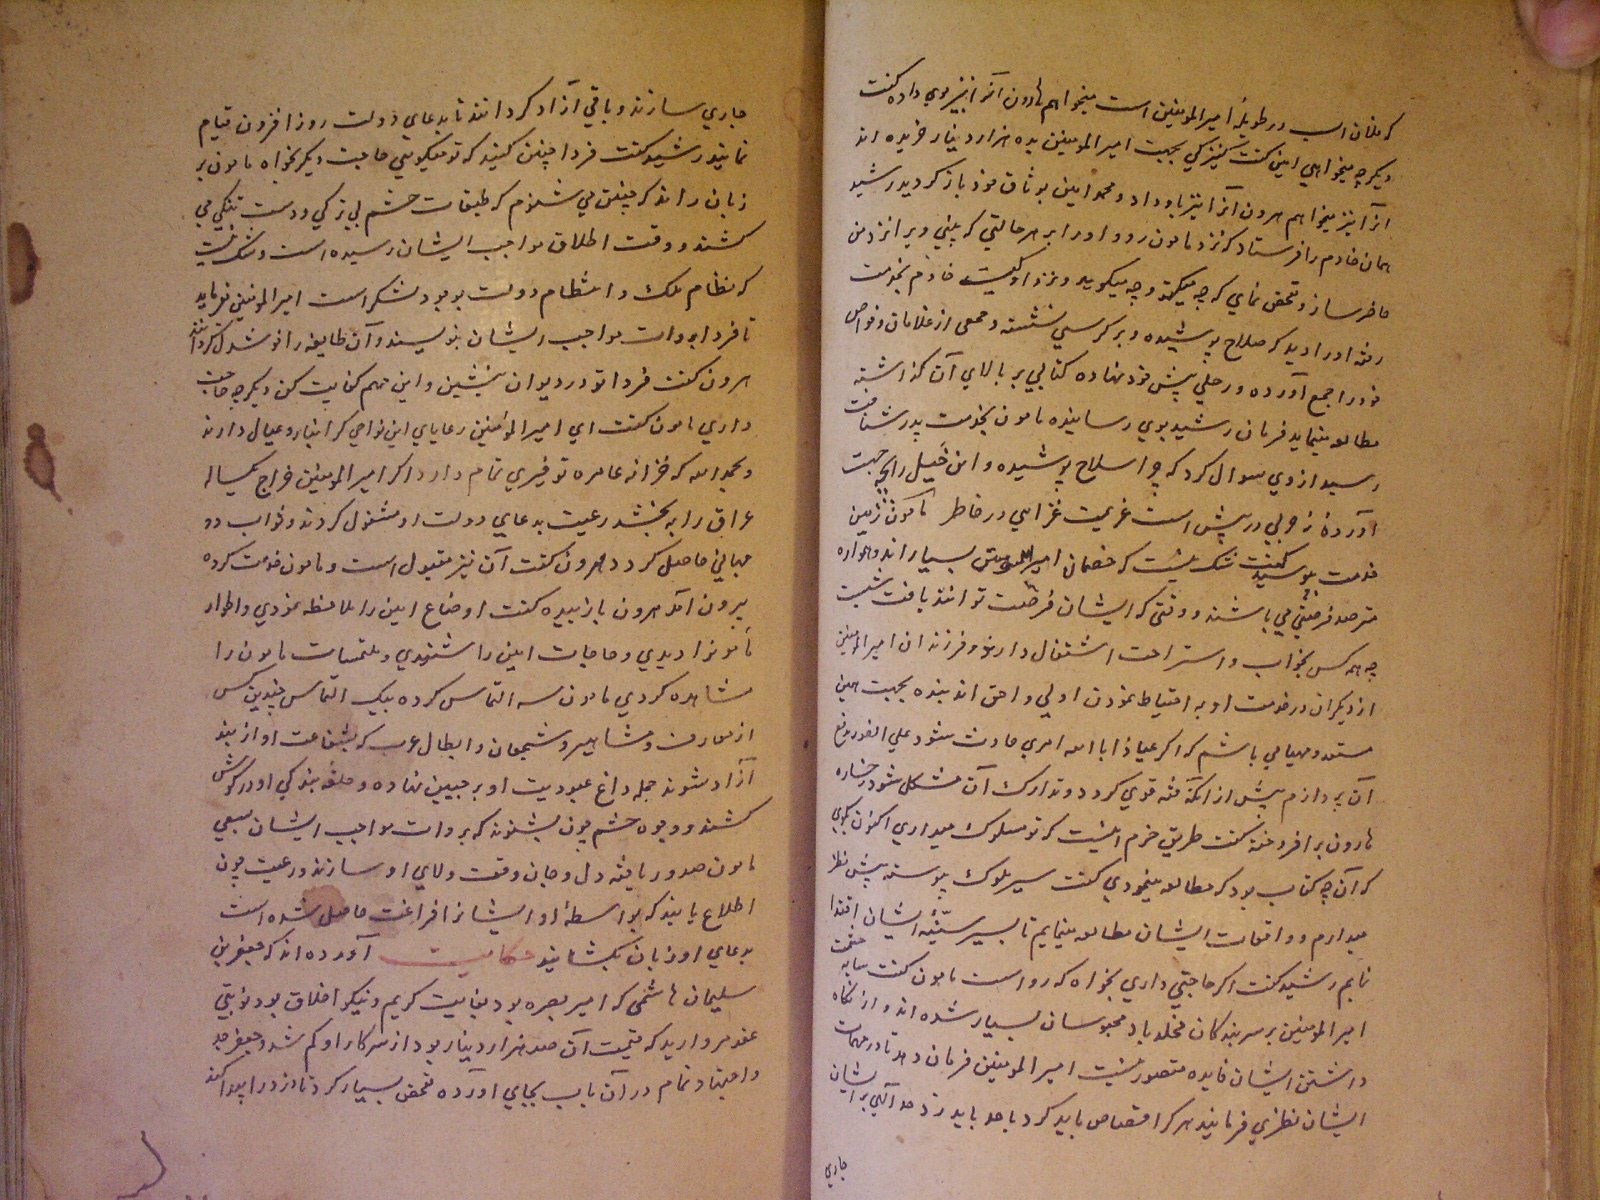 که فلان اسب در طویلهٔ امیر المومنین است میخواهم هارون آنرا نیز بوی داده گفت
دیگر چه میخواهی امین گفت کنیزکی بجهت امیر المومنین بده هزار دینار خریده اند
آنرا نیز میخواهم هرون آنرا نیز باو داد و محمد امین بوثاق خود بازگردید رشید
همان خادم را فرستاد که نزد مامون رو و او را بر هر حالتی که بینی ویرا نزد من
حاضر ساز و تفحص نمای که چه میکند و چه میگوید و نزد او کیست خادم بخدمت
رفته او را دید که صلاح پوشیده و بر کرسی نشسته و جمعی از غلامان و خواص
خود را جمع آورده و رحلی پیش خود نهاده کتابی بر بالای آن گذاشته
مطالعه مینماید فرمان رشید بوی رسانیده مامون بخدمت پدر شتافت
رسید از وی سوال کرد که چرا سلاح پوشیده و این خیل را بچه جهت
آوردهٔ نه حربی در پیش است نه عزیمت غزایی در خاطر مامون زمین
خدمت بوسید گفت شک نیست که خصمان امیر المومنین بسیار اند و همواره
مترصد فرصتی می باشند و وقتی که ایشان فرصت توانند یافت شبست
چه همه کس بخواب و استراحت اشتغال دارند و فرزندان امیر المومنین
از دیگران در خدمت او به احتیاط نمودن اولی و احق اند بنده بجهت همین
مستعد و مهیا می باشم که اگر عیاذا بالله امری حادث شود علی الفور بدفع
آن پردازم پیش از آنکه فتنه قوی گردد و تدارک آن مشکل شود رخساره
هارون برافروخته گفت طریق حزم اینست که تو مسلوک میداری اکنون بگوی
که آن چه کتاب بود که مطالعه مینمودی گفت سیر ملوک پیوسته پیش نظر
میدارم و واقعات ایشان مطالعه مینمایم تا بسیر سنیّهٔ ایشان اقتدا
نمایم رشید گفت اگر حاجتی داری بخواه که رواست مامون گفت سایه حشمت
امیر المومنین بر سر بندگان مخلد باد محبوسان بسیار شده اند و از نگاه
داشتن ایشان فایده متصور نیست امیر المومنین فرمان دهد تا در مهمات
ایشان نظری فرمایند هر کرا قصاص باید کرد یا حد باید زد حد الهی بر ایشان
جاری
جاری سازند و باقی آزاد گردانند تا بدعای دولت روز افزون قیام
نمایند رشید گفت فردا چنین کنند که تو میگویی حاجت دیگر بخواه مامون بر
زبان راند که چنین می شنوم که طبقات حشم بی برگی و دست تنگی می
کشند و وقت اطلاق مواجب ایشان رسیده است و شک نیست
که نظام ملک و انتظام دولت بوجود لشکر است امیر المومنین فرماید
تا فردا بروات مواجب ایشان بنویسند و آن طایفه را خوشدل گردانند
هرون گفت فردا تو در دیوان بنشین و این مهم کفایت کن دیگر چه حاجت
داری مامون گفت ای امیر المومنین رعایای این نواحی گرانبار و عیال دارند
و بحمد الله که خزانه عامره توفیری تمام دارد اگر امیر المومنین خراج یکساله
عراق را به بخشد رعیت بدعای دولت او مشغول گردند و ثواب دو
جهانی حاصل گردد هرون گفت آن نیز مقبول است و مامون خدمت کرده
بیرون آمد هرون با زبیده گفت اوضاع امین را ملاحظه نمودی و اطوار
مامونرا دیدی و حاجات امین را شنیدی و ملتمسات مامون را
مشاهده کردی مامون سه التماس کرده بیک التماس چندین کس
از معارف و مشاهیر و شجعان و ابطال عرب که بشفاعت او از بند
آزاد شوند جمله داغ عبودیت او بر جبین نهاده و حلقه بندگی او در گوش
کشند و وجوه حشم چون بشنوند که بروات مواجب ایشان بسعی
مامون صدور یافته دل و جان وقف ولای او سازند و رعیت چون
اطلاع یابند که بواسطهٔ او ایشانرا فراغت حاصل شده است
بدعای او زبان بگشایند حکایت آورده اند که جعفر بن
سلیمان هاشمی که امیر بصره بود بغایت کریم و نیکو اخلاق بود نوبتی
عقد مروارید که قیمت آن صد هزار دینار بود از سرکار او گم شد و جعفر جد
و اجتهاد تمام در آن باب بجای آورده تفحص بسیار کرد تا دزد را پیدا کند